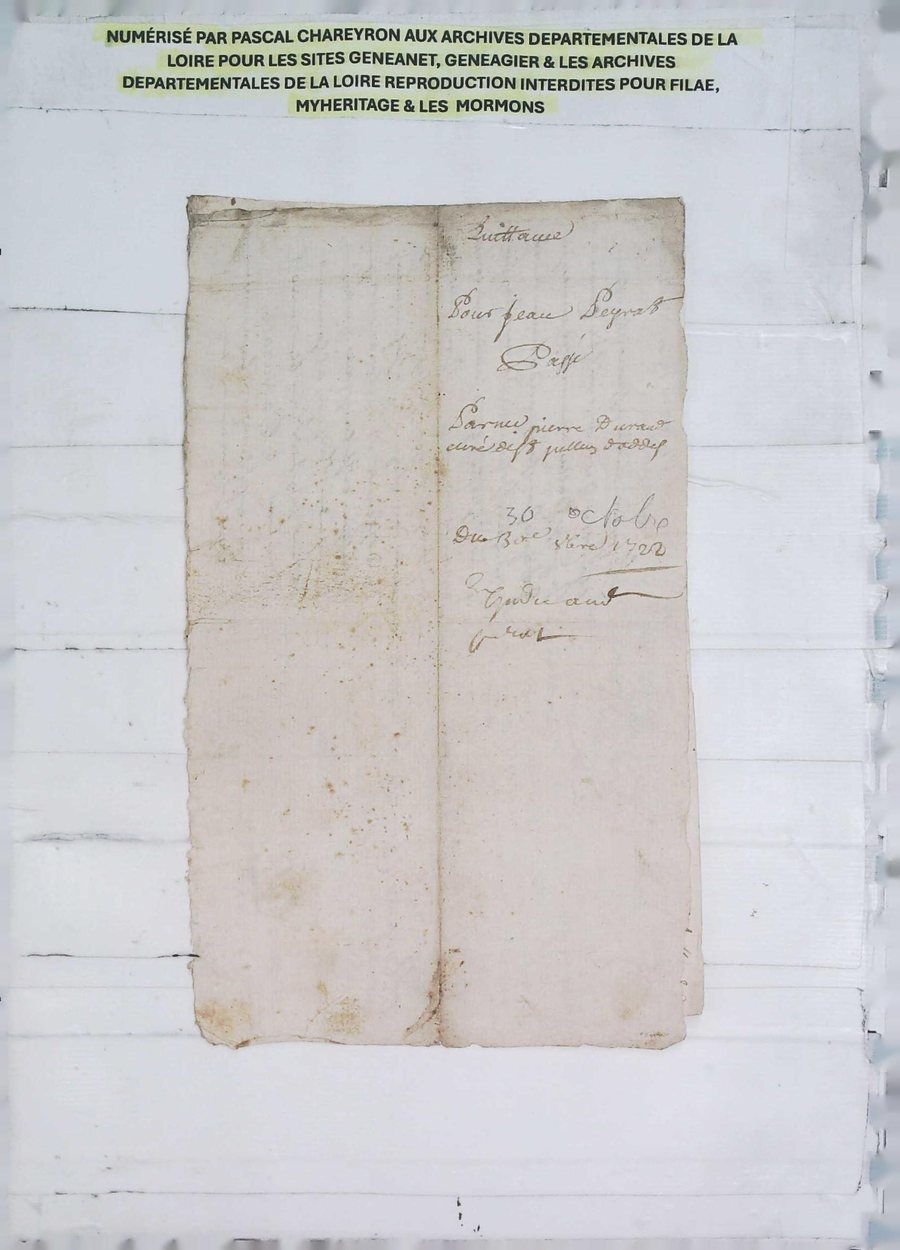 NUMÉRISÉ PAR PASCAL CHAREYRON AUX ARCHIVES DEPARTEMENTALES DE LA
LOIRE POUR LES SITES GENEANET, GENEAGIER & LES ARCHIVES
DEPARTEMENTALES DE LA LOIRE REPRODUCTION INTERDITES POUR FILAE,
MYHERITAGE & LES MORMONS
Quittance
Pour jean Peyrat
Passé
pierre Durand
curé
30 octobre
Du 30e 8bre 1722